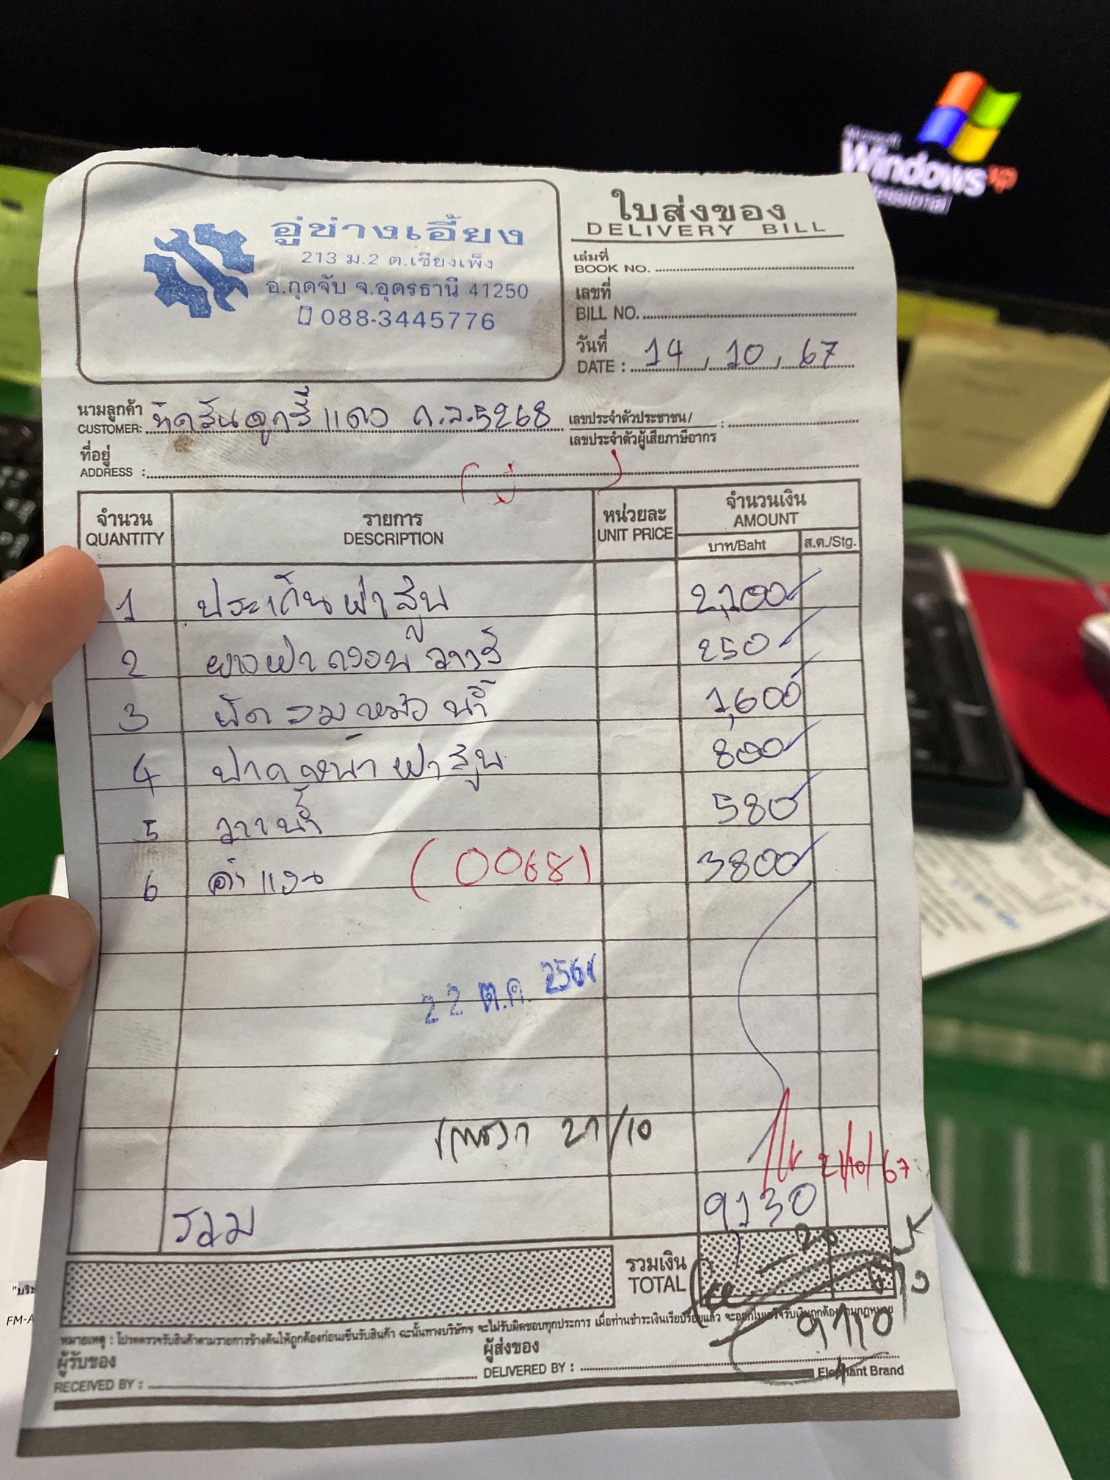 Microsoft
Windows xp
Professional
อู่ช่างเอี้ยง
213 ม.2 ต.เชียงเพ็ง
อ.กุดจับ จ.อุดรธานี 41250
088-3445776
ใบส่งของ
DELIVERY BILL
เล่มที่
BOOK NO.
เลขที่
BILL NO.
วันที่
DATE : 14 , 10 , 67
นามลูกค้า
CUSTOMER: แดง 5268
เลขประจำตัวประชาชน/
เลขประจำตัวผู้เสียภาษีอากร :
ที่อยู่
ADDRESS :
จำนวน รายการ หน่วยละ จำนวนเงิน
QUANTITY DESCRIPTION UNIT PRICE AMOUNT
บาท/Baht ส.ต./Stg.
1 ประเก็นฝาสูบ 2,100
2 250
3 พัดลมหม้อน้ำ 1,600
4 ปาดหน้าฝาสูบ 800
5 วาวน้ำ 580
6 ค่าแรง (0068) 3800
22 ต.ค. 256
27/10
21/10/67
รวม 9130
20
รวมเงิน
TOTAL
9110
หมายเหตุ : โปรดตรวจรับสินค้าตามรายการข้างต้นให้ถูกต้องก่อนเซ็นรับสินค้า ฉะนั้นทางบริษัทฯ จะไม่รับผิดชอบทุกประการ เมื่อท่านชำระเงินเรียบร้อยแล้ว
ผู้รับของ
RECEIVED BY :
ผู้ส่งของ
DELIVERED BY :
Elephant Brand
FM-A